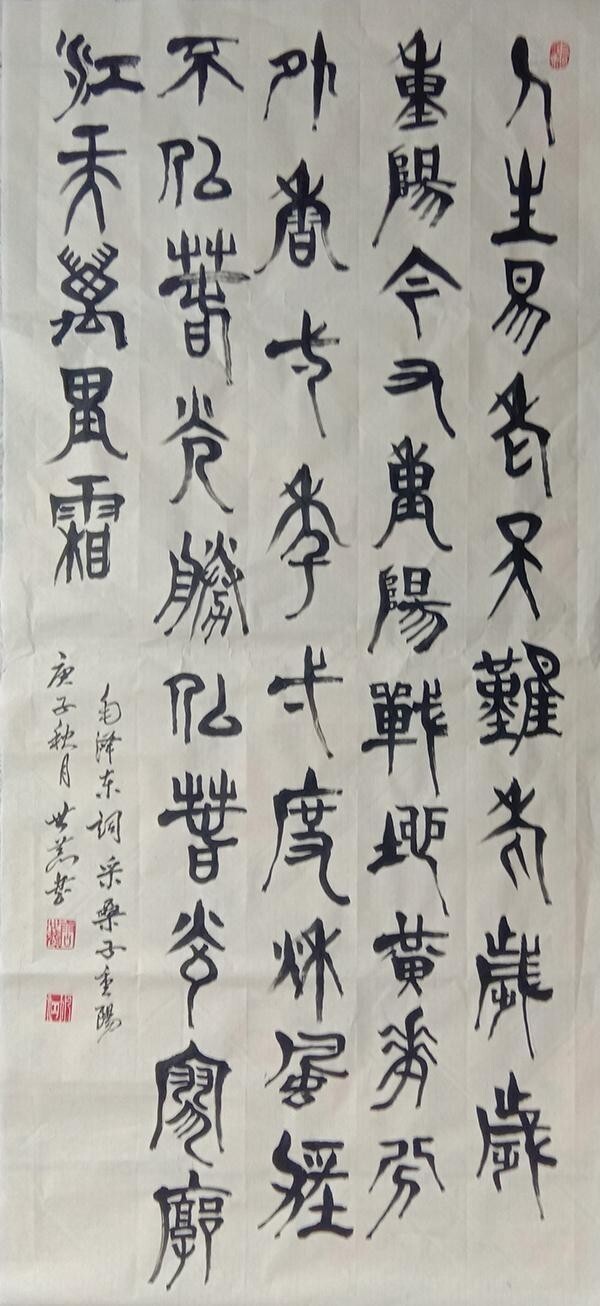 人生易老天難老歲歲
重陽今又重陽戰地黃花分
外香弌年弌度秋風勁
不似春光勝似春光寥廓
江天萬里霜
毛泽东詞采桑子重陽
庚子秋月世書